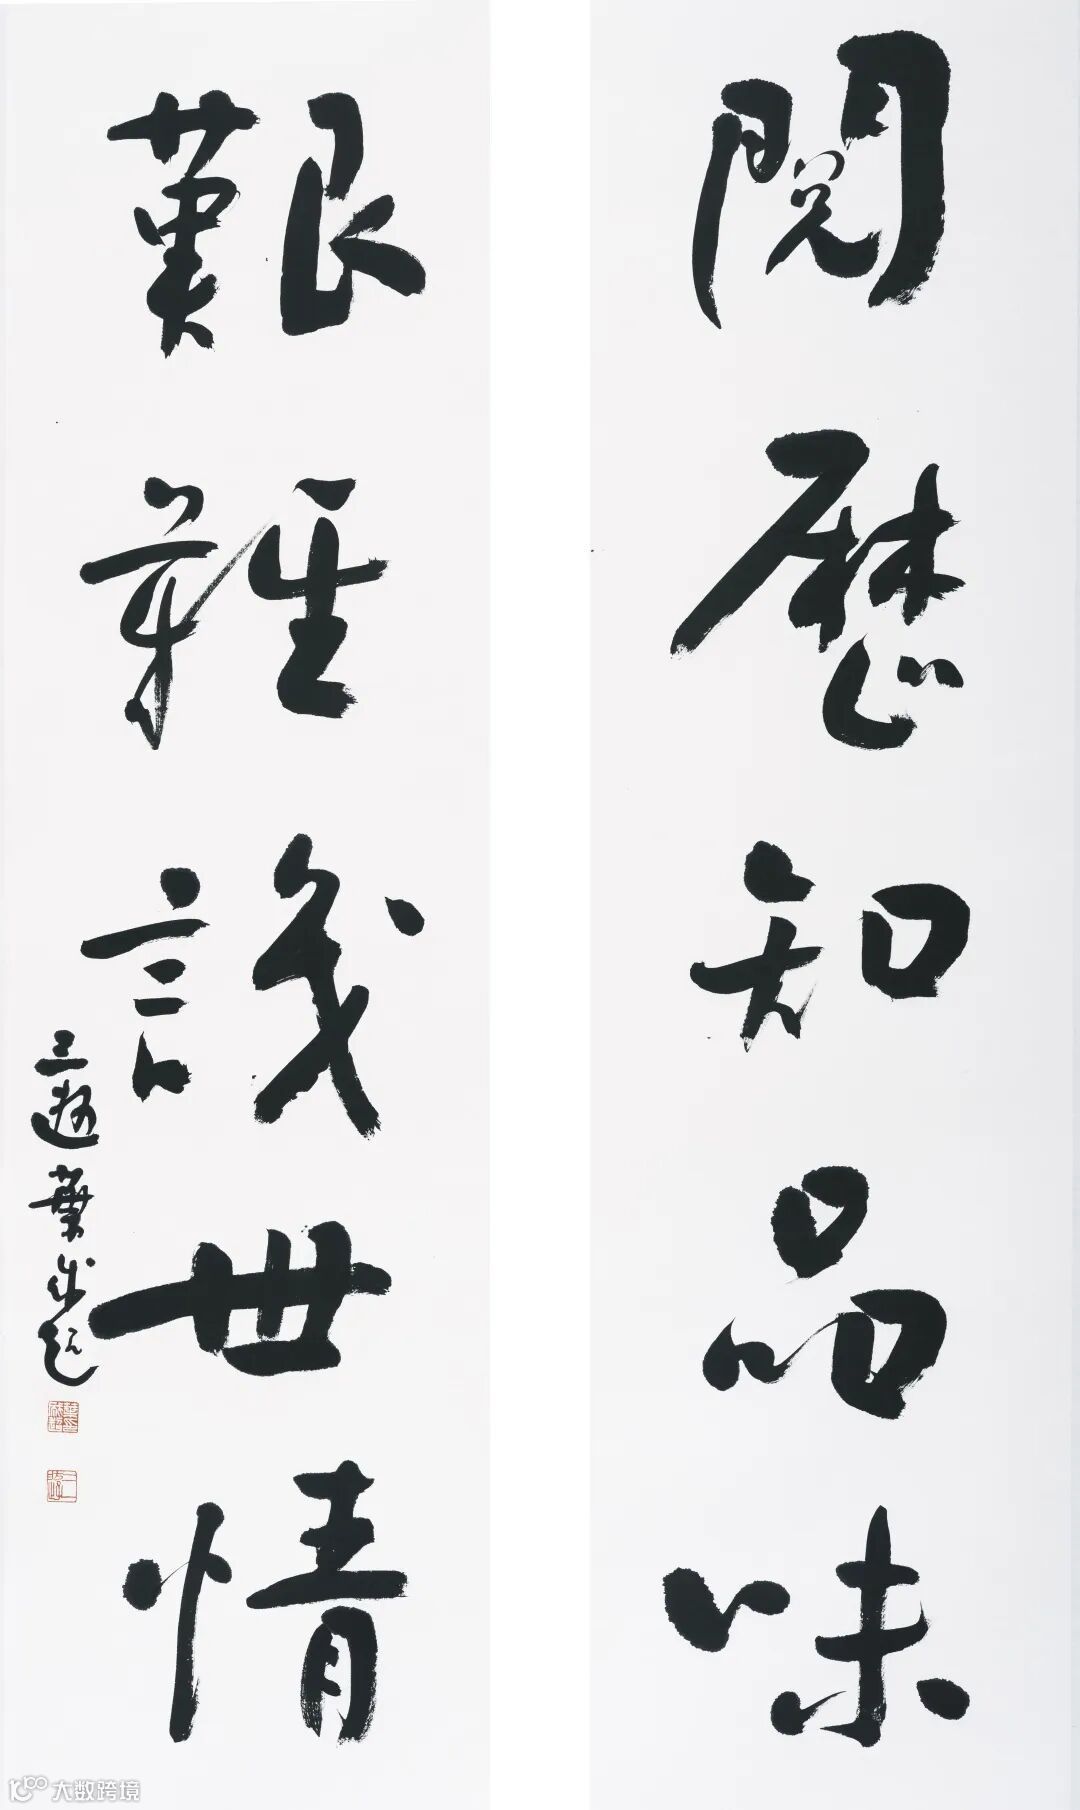 閱歷知品味
艱難識世情
三遊葉成題
大数跨境